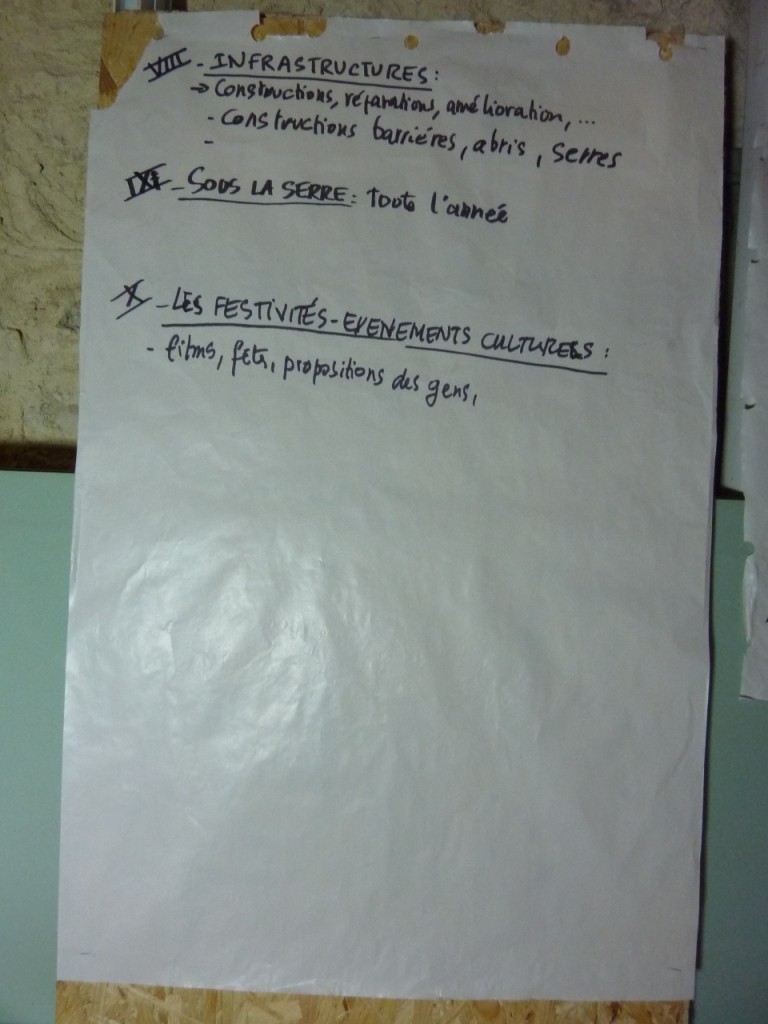 VIII - INFRASTRUCTURES :
→ Constructions, réparations, amélioration, ...
- Constructions barrières, abris, serres
-
IX - SOUS LA SERRE : Toute l'anneé
X - LES FESTIVITÉS - EVENEMENTS CULTURELS :
- films, fets, propositions des gens,